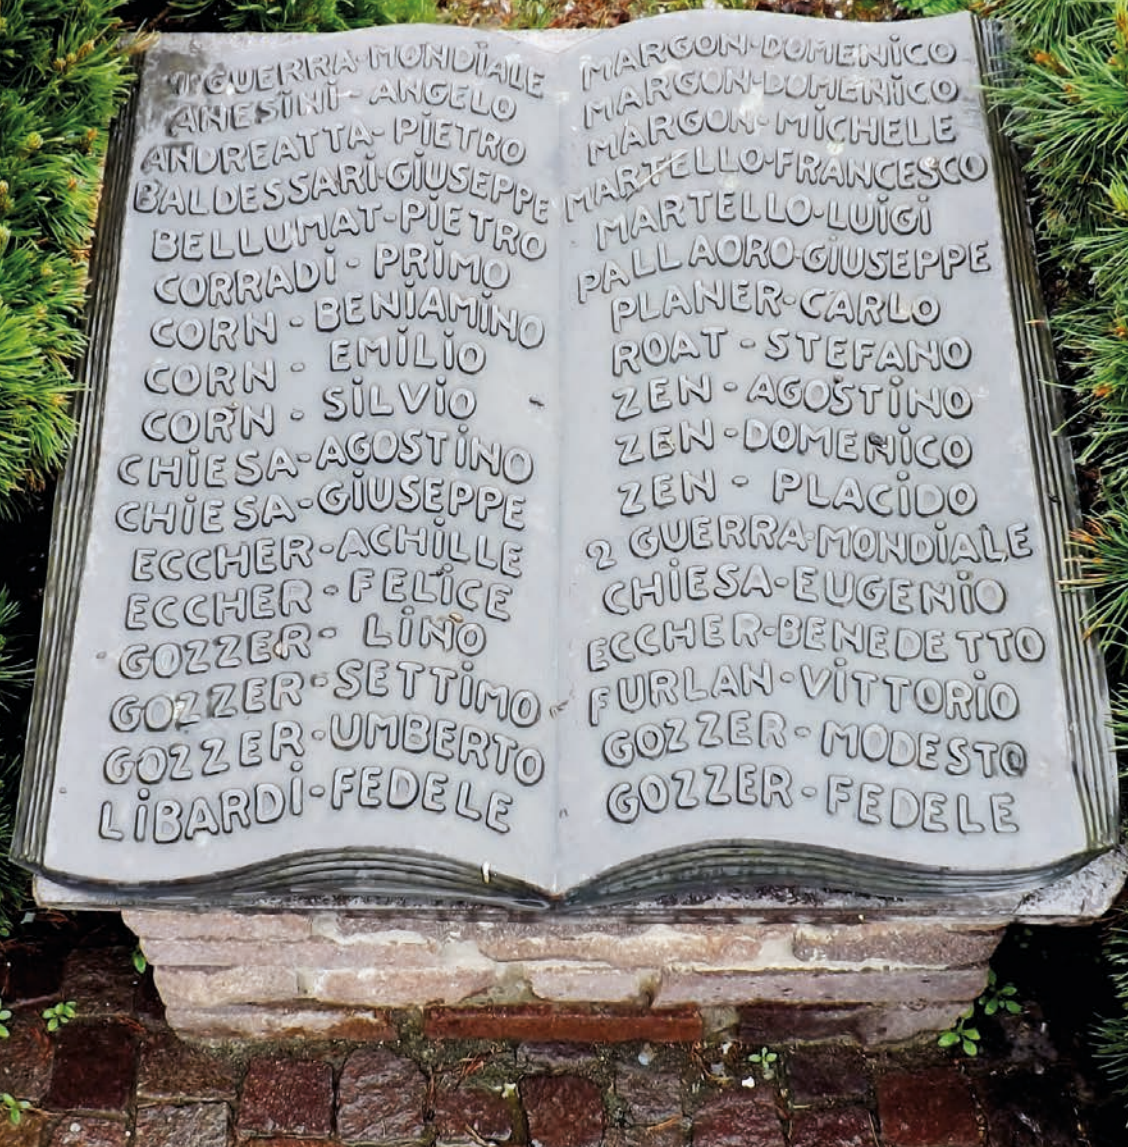 1 GUERRA·MONDiALE
ANESiNi-ANGELO
ANDREATTA-PiETRO
BALDESSARi·GiUSEPPE
BELLUMAT-PiETRO
CORRADi-PRiMO
CORN-BENiAMiNO
CORN-EMiLiO
CORN-SiLViO
CHiESA-AGOSTiNO
CHiESA-GiUSEPPE
ECCHER-ACHiLLE
ECCHER-FELiCE
GOZZER-LiNO
GOZZER-SETTiMO
GOZZER-UMBERTO
LiBARDi-FEDELE
MARGON·DOMENiCO
MARGON·DOMENiCO
MARGON·MiCHELE
MARTELLO·FRANCESCO
MARTELLO·LUiGi
PALLAORO·GiUSEPPE
PLANER-CARLO
ROAT-STEFANO
ZEN-AGOSTiNO
ZEN-DOMENiCO
ZEN-PLACiDO
2 GUERRA·MONDiALE
CHiESA-EUGENiO
ECCHER-BENEDETTO
FURLAN-ViTTORiO
GOZZER-MODESTO
GOZZER-FEDELE